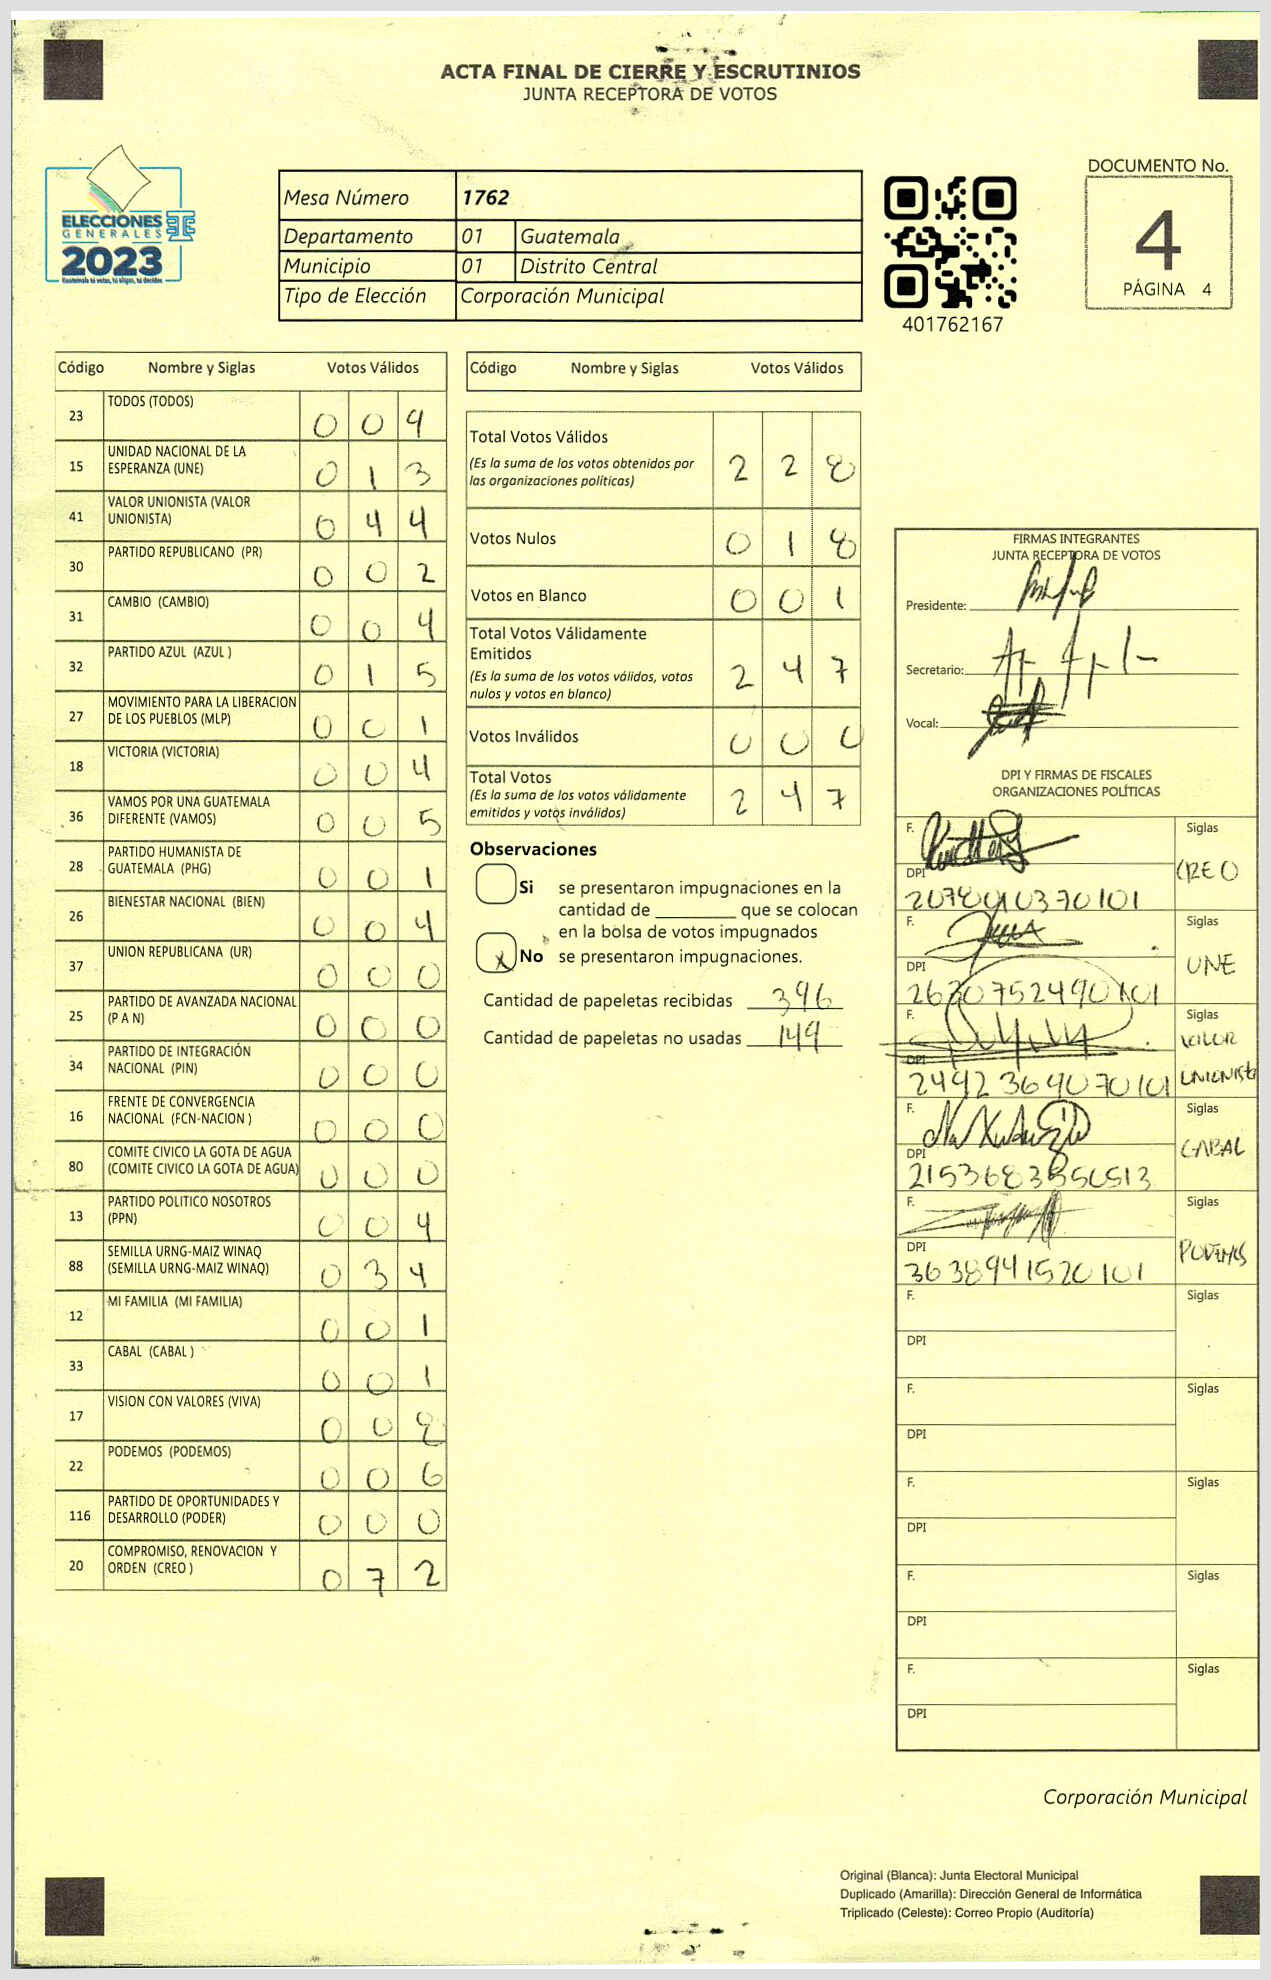 ACTA FINAL DE CIERRE Y ESCRUTINIOS
JUNTA RECEPTORA DE VOTOS
ELECCIONES
GENERALES
2023
Mesa Número 1762
Departamento 01 Guatemala
Municipio 01 Distrito Central
Tipo de Elección Corporación Municipal
401762167
DOCUMENTO No.
4
PÁGINA 4
Código Nombre y Siglas Votos Válidos
23 TODOS (TODOS) 0 0 9
15 UNIDAD NACIONAL DE LA
ESPERANZA (UNE) 0 1 3
41 VALOR UNIONISTA (VALOR
UNIONISTA) 0 4 4
30 PARTIDO REPUBLICANO (PR) 0 0 2
31 CAMBIO (CAMBIO) 0 0 4
32 PARTIDO AZUL (AZUL ) 0 1 5
27 MOVIMIENTO PARA LA LIBERACION
DE LOS PUEBLOS (MLP) 0 0 1
18 VICTORIA (VICTORIA) 0 0 4
36 VAMOS POR UNA GUATEMALA
DIFERENTE (VAMOS) 0 0 5
28 PARTIDO HUMANISTA DE
GUATEMALA (PHG) 0 0 1
26 BIENESTAR NACIONAL (BIEN) 0 0 4
37 UNION REPUBLICANA (UR) 0 0 0
25 PARTIDO DE AVANZADA NACIONAL
(P A N) 0 0 0
34 PARTIDO DE INTEGRACIÓN
NACIONAL (PIN) 0 0 0
16 FRENTE DE CONVERGENCIA
NACIONAL (FCN-NACION ) 0 0 0
80 COMITE CIVICO LA GOTA DE AGUA
(COMITE CIVICO LA GOTA DE AGUA) 0 0 0
13 PARTIDO POLITICO NOSOTROS
(PPN) 0 0 4
88 SEMILLA URNG-MAIZ WINAQ
(SEMILLA URNG-MAIZ WINAQ) 0 3 4
12 MI FAMILIA (MI FAMILIA) 0 0 1
33 CABAL (CABAL ) 0 0 1
17 VISION CON VALORES (VIVA) 0 0 8
22 PODEMOS (PODEMOS) 0 0 6
116 PARTIDO DE OPORTUNIDADES Y
DESARROLLO (PODER) 0 0 0
20 COMPROMISO, RENOVACION Y
ORDEN (CREO ) 0 7 2
Código Nombre y Siglas Votos Válidos
Total Votos Válidos
(Es la suma de los votos obtenidos por
las organizaciones políticas) 2 2 8
Votos Nulos 0 1 8
Votos en Blanco 0 0 1
Total Votos Válidamente
Emitidos
(Es la suma de los votos válidos, votos
nulos y votos en blanco) 2 4 7
Votos Inválidos 0 0 0
Total Votos
(Es la suma de los votos válidamente
emitidos y votos inválidos) 2 4 7
Observaciones
Si se presentaron impugnaciones en la
cantidad de ________ que se colocan
en la bolsa de votos impugnados
x No se presentaron impugnaciones.
Cantidad de papeletas recibidas 396
Cantidad de papeletas no usadas 149
FIRMAS INTEGRANTES
JUNTA RECEPTORA DE VOTOS
Presidente:
Secretario:
Vocal:
DPI Y FIRMAS DE FISCALES
ORGANIZACIONES POLÍTICAS
F. Siglas
CREO
DPI
F. Siglas
UNE
DPI
2620752490101
F. Siglas
VALOR
UNIONISTA
DPI
2492369070101
F. Siglas
CABAL
DPI
F. Siglas
PODEMOS
DPI
3638941520101
F. Siglas
DPI
F. Siglas
DPI
F. Siglas
DPI
F. Siglas
DPI
F. Siglas
DPI
Corporación Municipal
Original (Blanca): Junta Electoral Municipal
Duplicado (Amarilla): Dirección General de Informática
Triplicado (Celeste): Correo Propio (Auditoría)